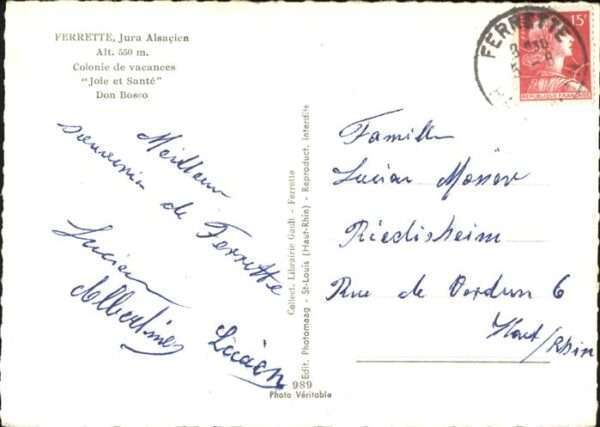 FERRETTE, Jura Alsaçien
Alt. 550 m.
Colonie de vacances
"Joie et Santé"
Don Bosco
Meilleur
souvenir de Ferrette
Lucien
Albertine
Lucien
Collect. Librairie Gault - Ferrette
Edit. Photomaag - St-Louis (Haut-Rhin) - Reproduct. interdite
989
Photo Véritable
FERRETTE
15F
REPUBLIQUE FRANÇAISE
Famille
Lucian
Riedisheim
Rue de Verdun 6
Haut/Rhin